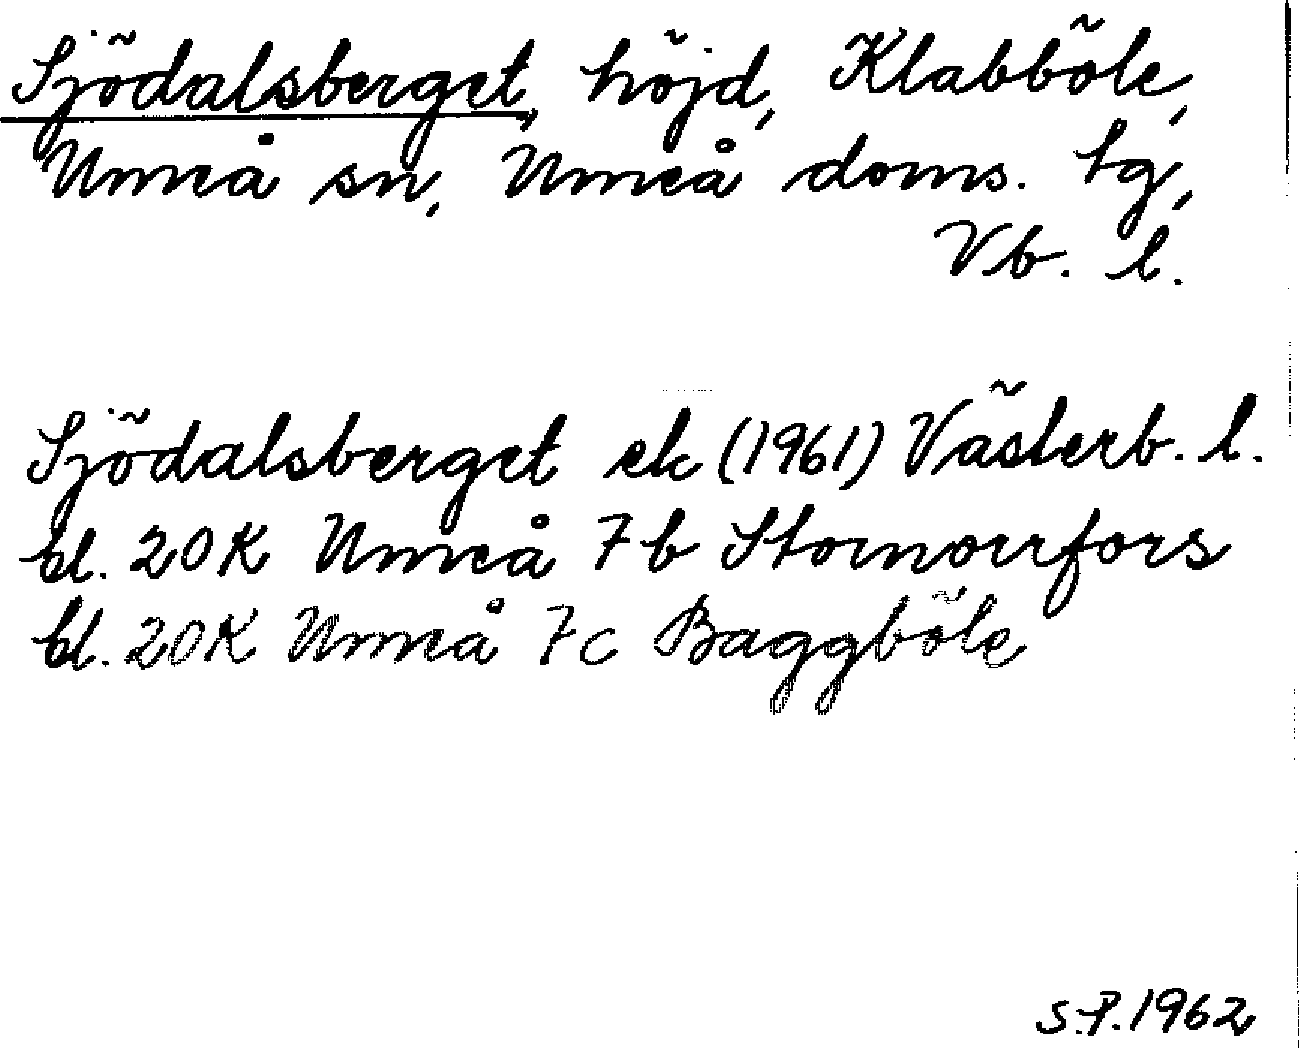 Sjödalsberget, höjd, Klabböle,
Umeå sn, Umeå doms. tg,
Vb. l.
Sjödalsberget ek (1961) Västerb. l.
bl. 20K Umeå 7b Stornorrfors
bl. 20K Umeå 7c Baggböle
S.P. 1962